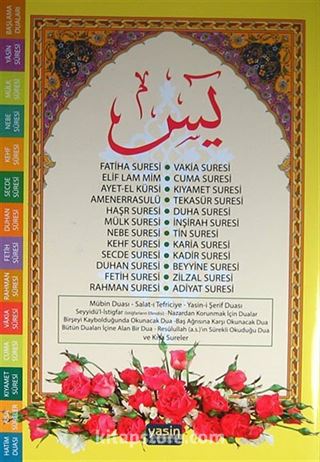 BAŞLAMA DUALARI
YÂSİN SÛRESİ
MÜLK SÛRESİ
NEBE SÛRESİ
KEHF SÛRESİ
SECDE SÛRESİ
DUHAN SÛRESİ
FETİH SÛRESİ
RAHMAN SÛRESİ
VAKIA SÛRESİ
CUMA SÛRESİ
KIYAMET SÛRESİ
KISA SÛRELER
HATİM DUASI
يس
FATİHA SURESİ • VAKIA SURESİ
ELİF LAM MİM • CUMA SURESİ
AYET-EL KÜRSİ • KIYAMET SURESİ
AMENERRASULÜ • TEKASÜR SURESİ
HAŞR SURESİ • DUHA SURESİ
MÜLK SURESİ • İNŞİRAH SURESİ
NEBE SURESİ • TİN SURESİ
KEHF SURESİ • KARİA SURESİ
SECDE SURESİ • KADİR SURESİ
DUHAN SURESİ • BEYYİNE SURESİ
FETİH SURESİ • ZİLZAL SURESİ
RAHMAN SURESİ • ADİYAT SURESİ
Mübin Duası - Salat-ı Tefriciye - Yasin-i Şerif Duası
Seyyidü'l-İstiğfar (İstiğfarların Efendisi) - Nazardan Korunmak İçin Dualar
Birşeyi Kaybolduğunda Okunacak Dua -Baş Ağrısına Karşı Okunacak Dua
Bütün Duaları İçine Alan Bir Dua - Resûlullah (a.s.)'ın Sürekli Okuduğu Dua
ve Kısa Sureler
yasin
kitapstore.com